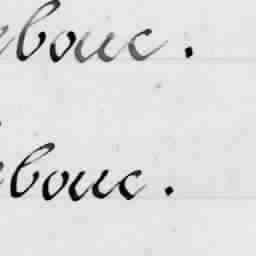 ebouc.
ebouc.